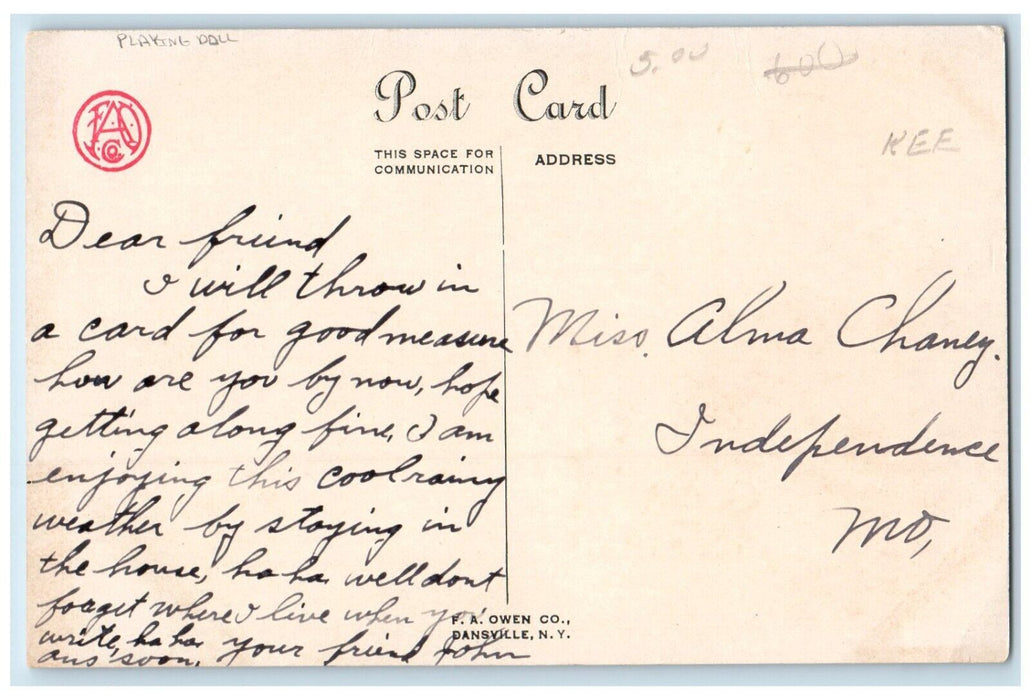 PLAYING DOLL
5.00
600
FAO
Co
Post Card
KEE
THIS SPACE FOR
COMMUNICATION
ADDRESS
Dear friend
I will throw in
a card for good measure
how are you by now, hope
getting along fine, I am
enjoying this cool rainy
weather by staying in
the house, ha ha well dont
forget where I live when you
write, ha ha your friend John
ans soon.
Miss. Alma Chaney.
Independence
Mo,
F. A. OWEN CO.,
DANSVILLE, N. Y.